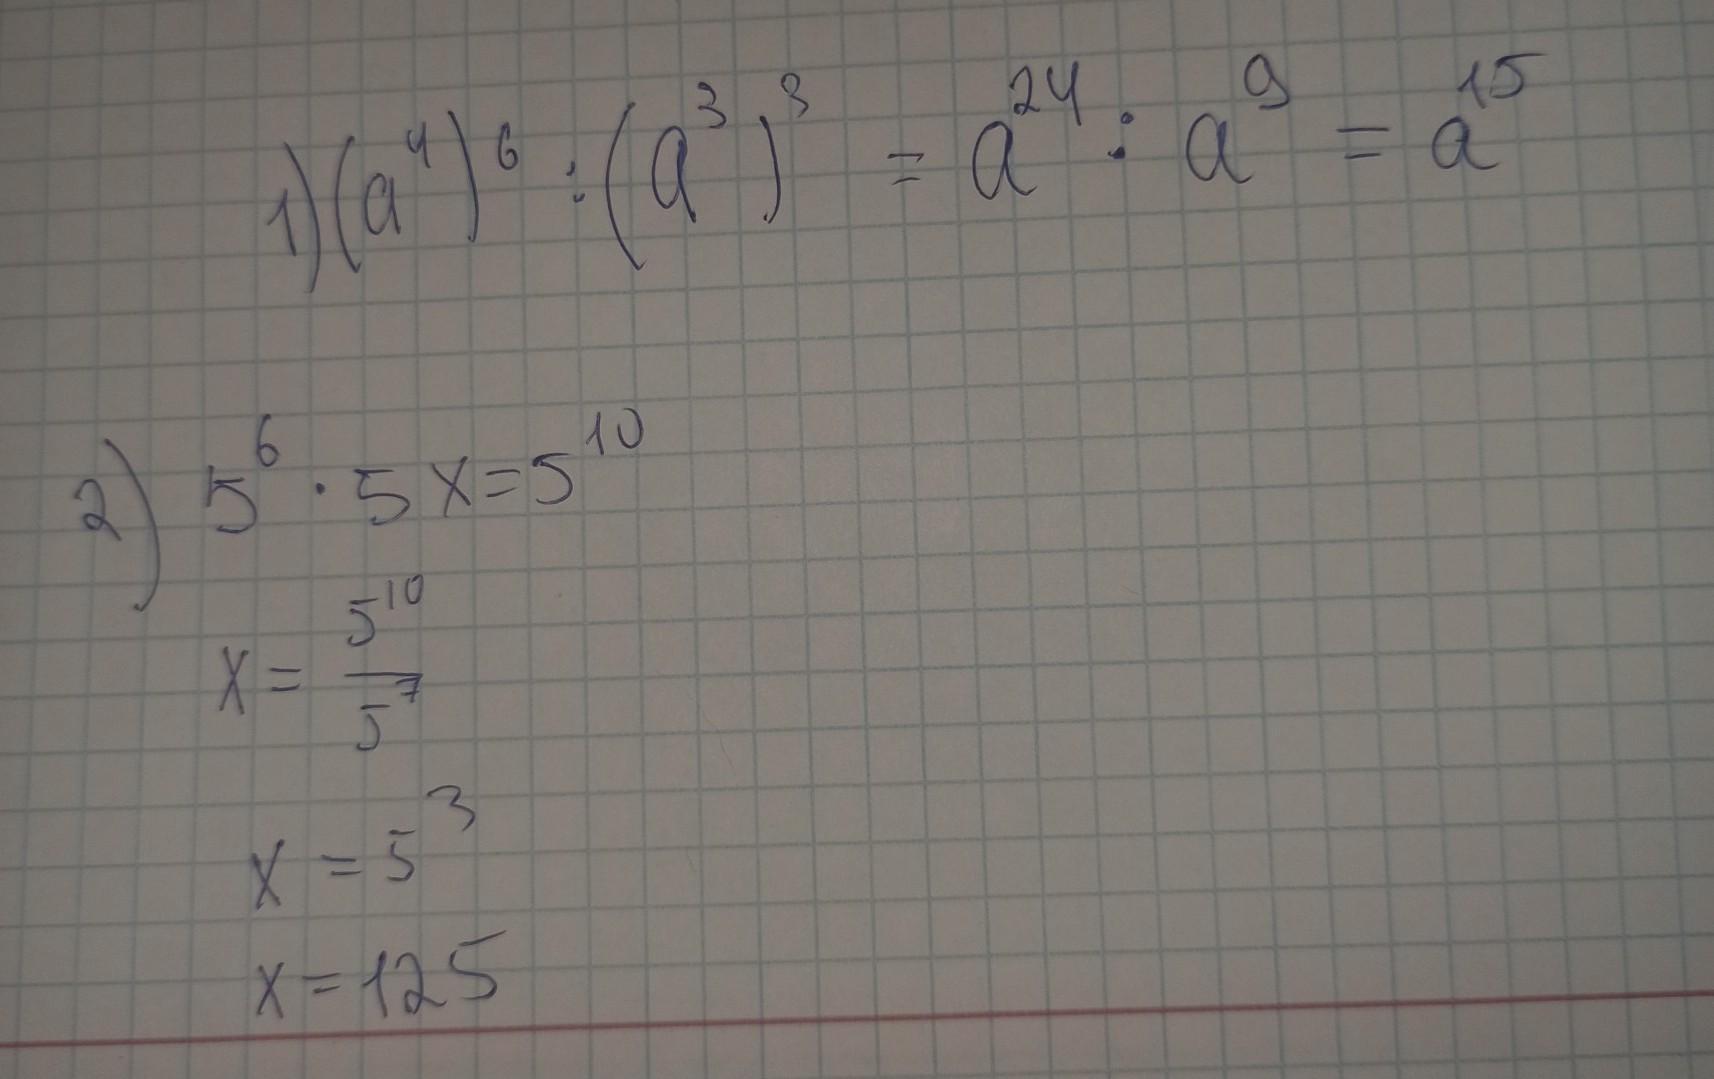 1) (a⁴)⁶ : (a³)³ = a²⁴ : a⁹ = a¹⁵
2) 5⁶ · 5x = 5¹⁰
x = 5¹⁰/5⁷
x = 5³
x = 125